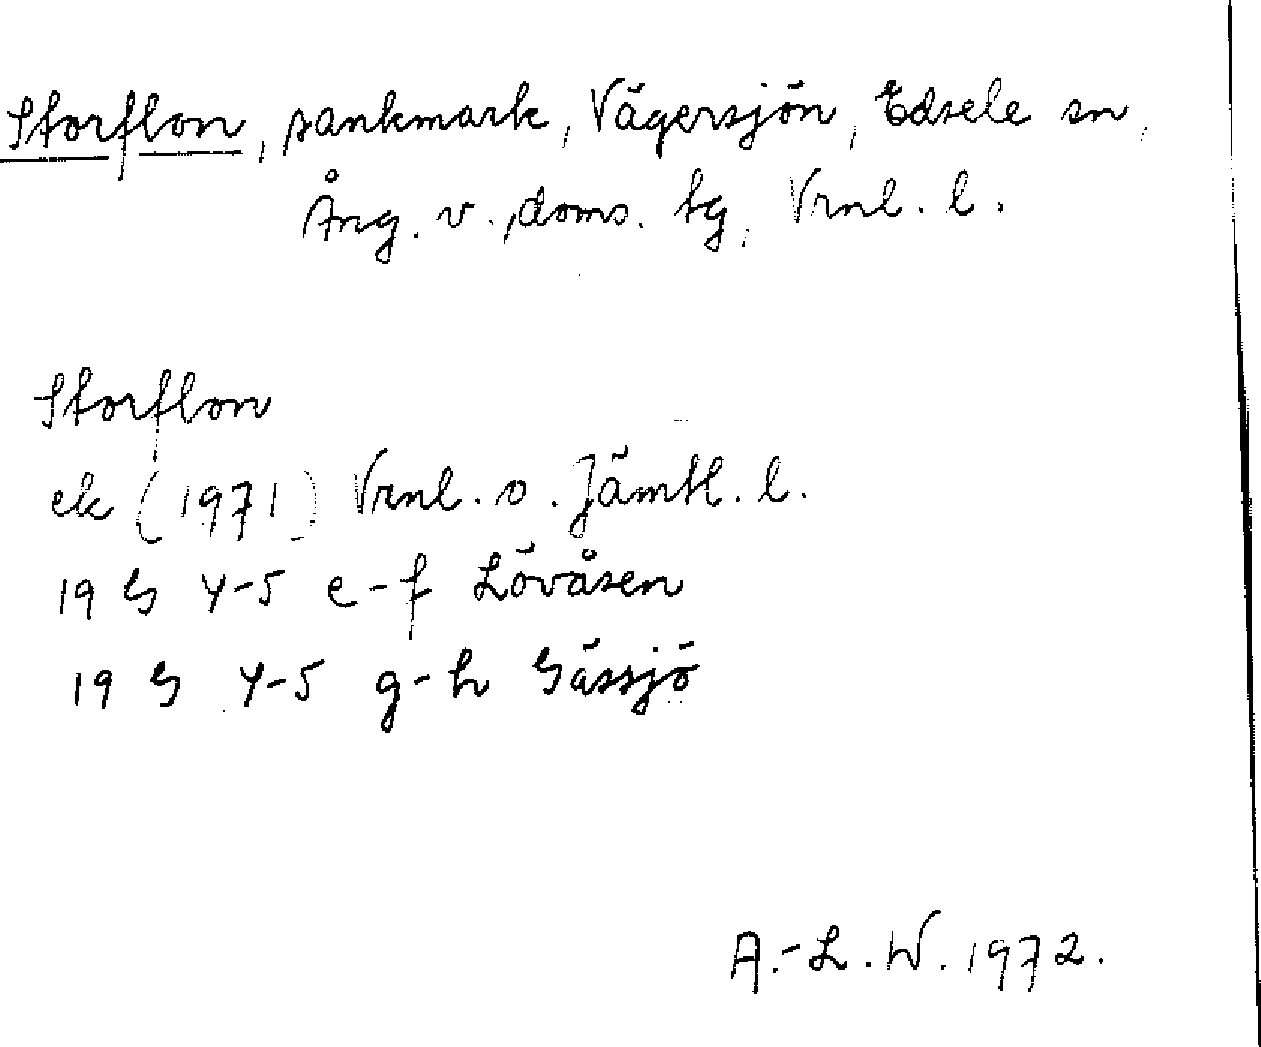 Storflon, sankmark, Vägersjön, Edsele sn,
Ång. v., doms. tg, Vrnl. l.
Storflon
ek (1971) Vrnl. o. Jämtl. l.
19 G 4-5 e-f Lövåsen
19 G 4-5 g-h Gässjö
A.-L. W. 1972.